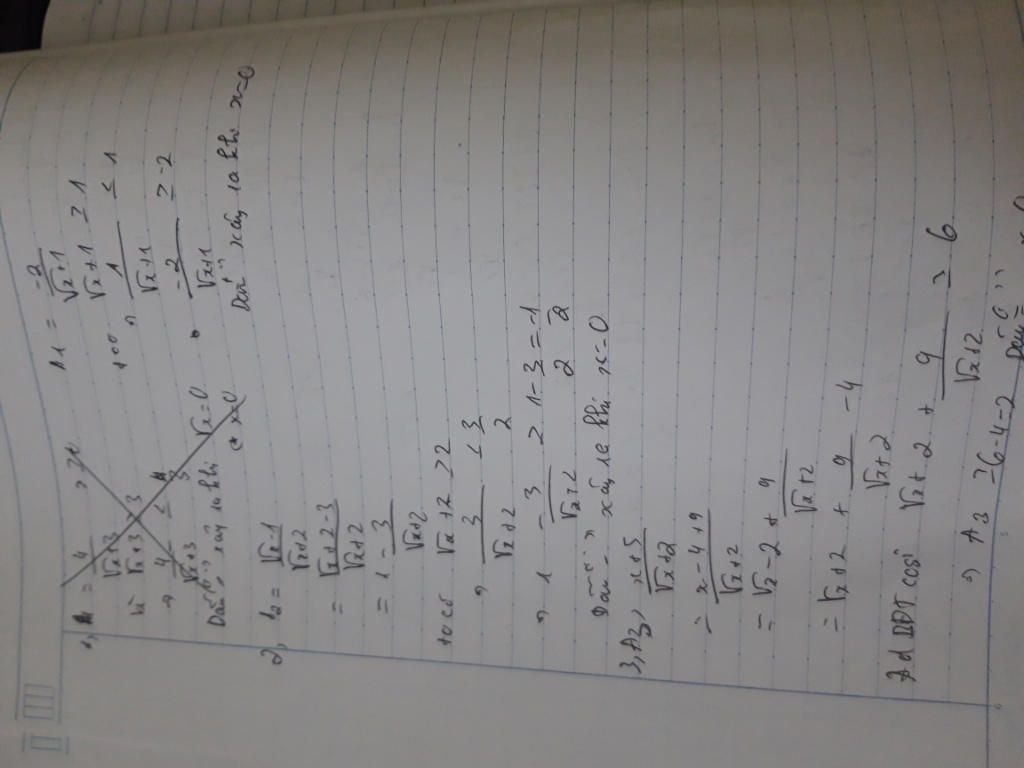 1, A = 4/(√x+3)
Vì √x+3 ≥ 3
=> 4/(√x+3) ≤ 4/3
Dấu "=" xảy ra khi √x=0
x=0
A1 = -2/(√x+1)
√x+1 ≥ 1
=> 1/(√x+1) ≤ 1
-2/(√x+1) ≥ -2
Dấu "=" xảy ra khi x=0
2, A2 = (√x-1)/(√x+2)
= (√x+2-3)/(√x+2)
= 1 - 3/(√x+2)
Ta có √x+2 ≥ 2
=> 3/(√x+2) ≤ 3/2
=> 1 - 3/(√x+2) ≥ 1 - 3/2 = -1/2
Dấu "=" xảy ra khi x=0
3, A3, (x+5)/(√x+2)
= (x-4+9)/(√x+2)
= √x-2 + 9/(√x+2)
= √x+2 + 9/(√x+2) - 4
Ad BĐT cosi √x+2 + 9/(√x+2) ≥ 6
=> A3 ≥ 6-4=2
Dấu "="